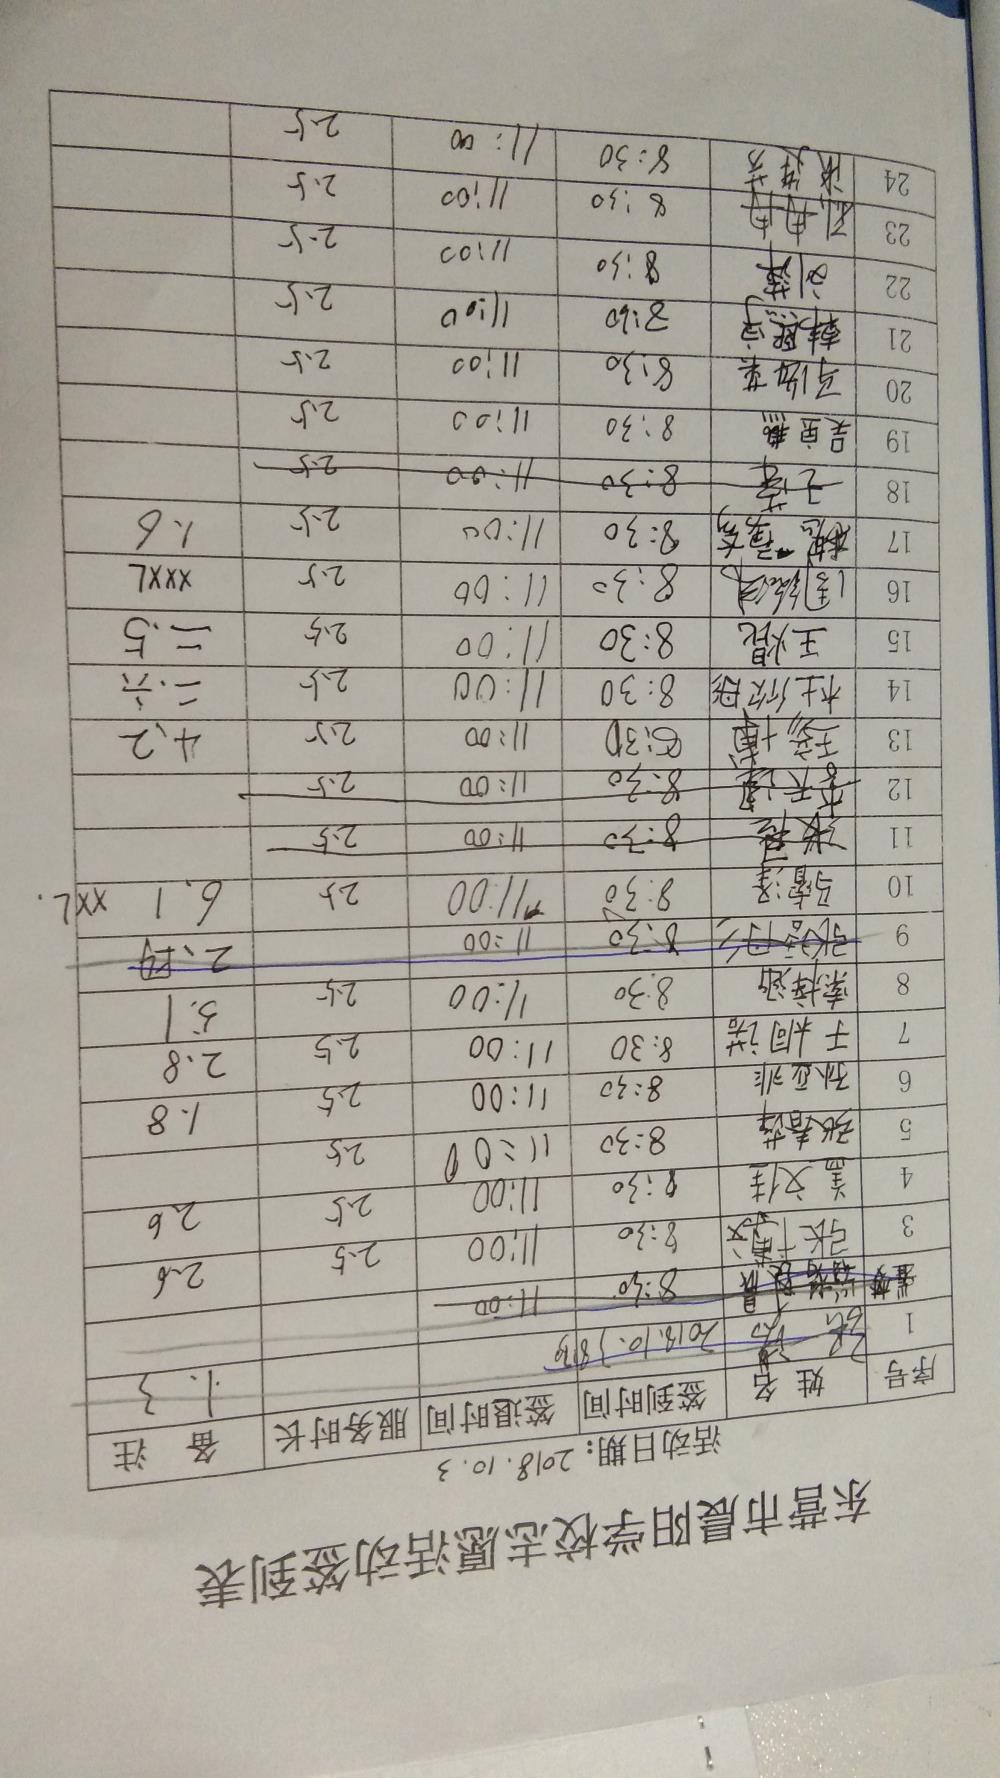 东营市晨阳学校志愿活动签到表
活动日期：2018.10.3
序号 姓名 签到时间 签退时间 服务时长 备注
1 2018.10.3 8:30 1.3
8:30 11:00
3 8:30 11:00 2.5 2.6
4 盖文佳 8:30 11:00 2.5 2.6
5 张春萍 8:30 11:00 2.5
6 孙亚非 8:30 11:00 2.5 1.8
7 于炯诺 8:30 11:00 2.5 2.8
8 索梓涵 8:30 11:00 2.5 5.1
9 8:30 11:00 2.四
10 马睿泽 8:30 11:00 2.5 6.1 XXL.
11 8:30 11:00 2.5
12 8:30 11:00 2.5
13 8:30 11:00 2.5 4.2
14 杜欣彤 8:30 11:00 2.5 二.六
15 王焜 8:30 11:00 2.5 二.5
16 8:30 11:00 2.5 XXXL
17 8:30 11:00 2.5 1.6
18 8:30 11:00 2.5
19 8:30 11:00 2.5
20 8:30 11:00 2.5
21 韩熙宇 8:30 11:00 2.5
22 刘萍 8:30 11:00 2.5
23 8:30 11:00 2.5
24 8:30 11:00 2.5